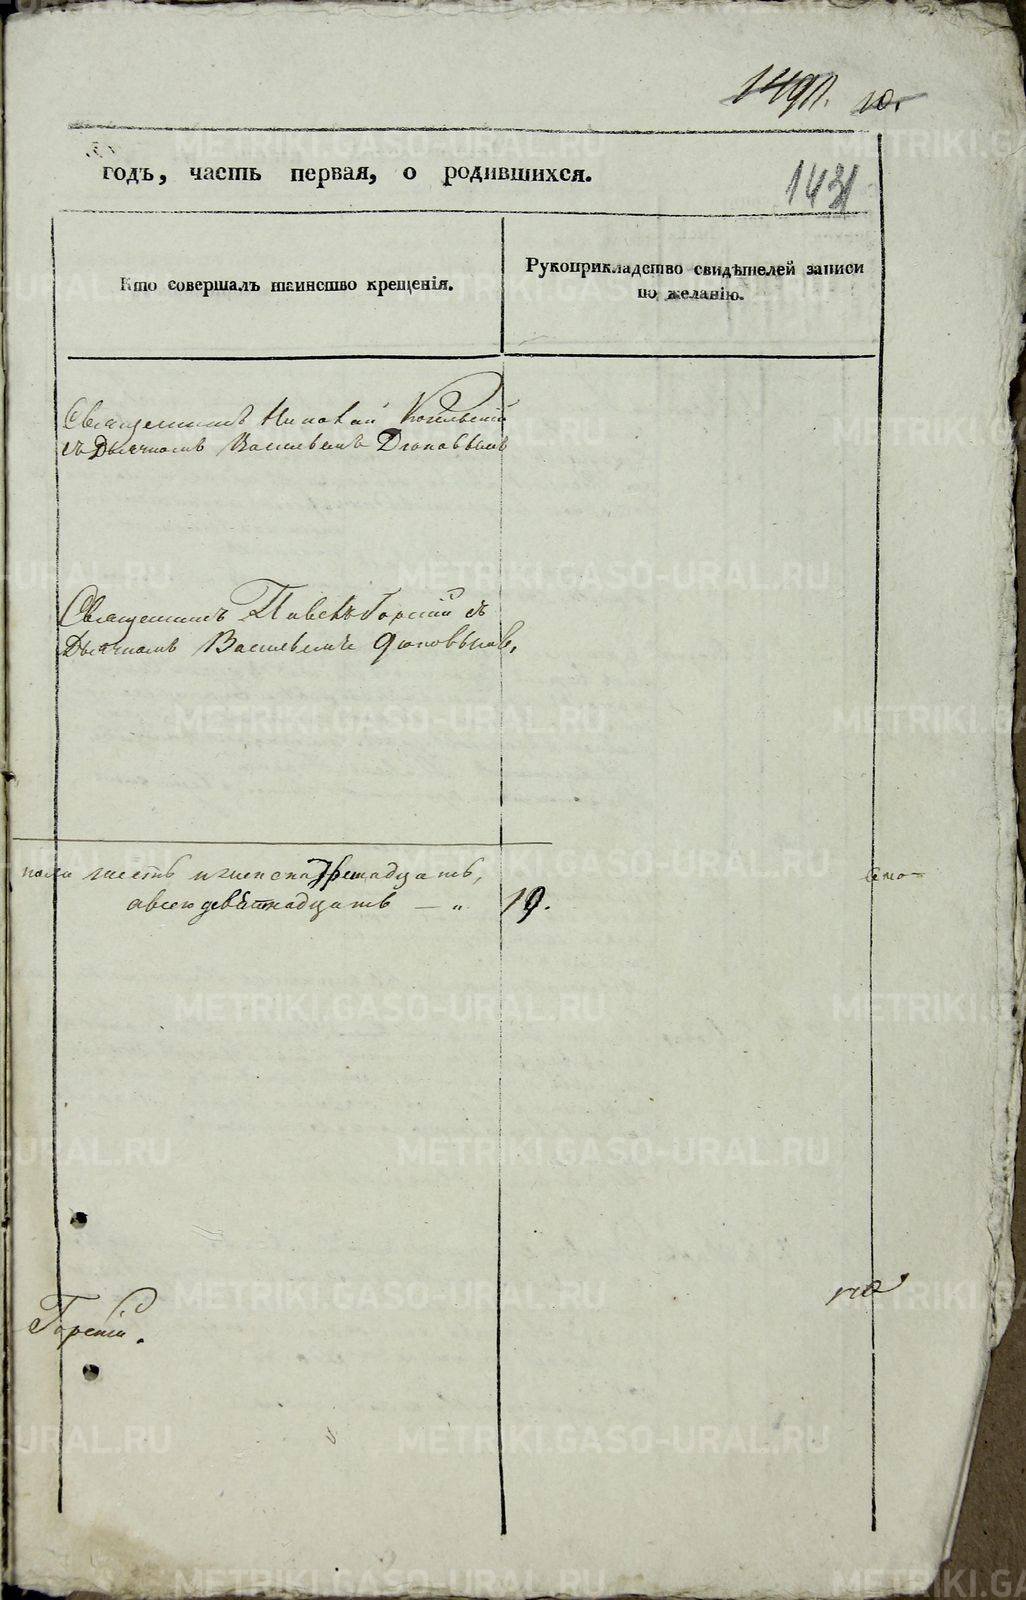 149
10.
годъ, часть первая, о родившихся.
143
Кто совершалъ таинство крещенія.
Рукоприкладство свидѣтелей записи
по желанію.
Священникъ Николай
съ Дьячкомъ Васильемъ
Священникъ Павелъ Горскій съ
Дьячкомъ Васильемъ
пола шесть и женска тринадцать,
а всего девятнадцать — „ 19.
Горскій.
METRIKI.GASO-URAL.RU